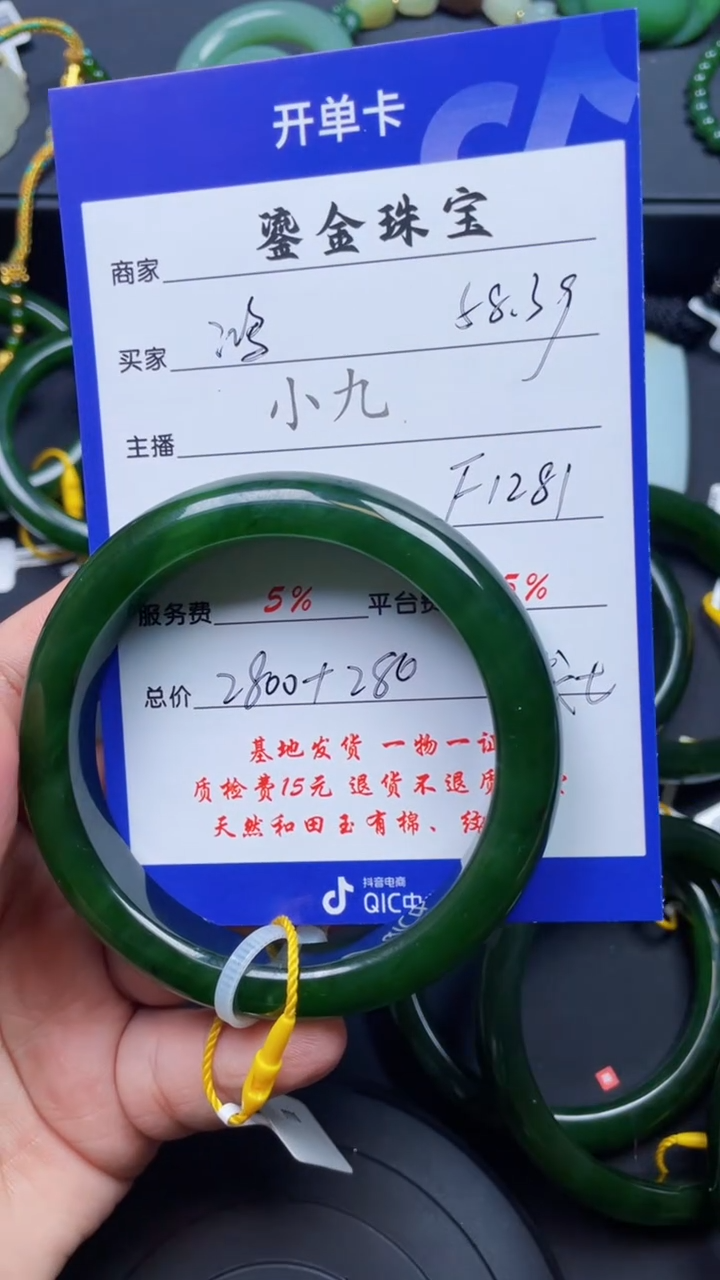 开单卡
商家 鎏金珠宝
买家 鸿 58.39
主播 小九
F1281
服务费 5% 平台费 5%
总价 2800+280
基地发货 一物一证
质检费15元 退货不退质
天然和田玉有棉、纹
抖音电商
QIC